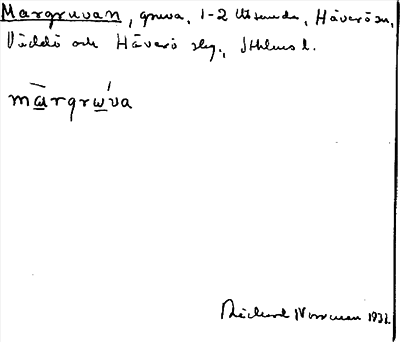 Margruvan, gruva, 1-2 Utsunda, Häverö sn,
Väddö och Häverö slg, Sthlms l.
margrwva
Rickard Norrman 1932.